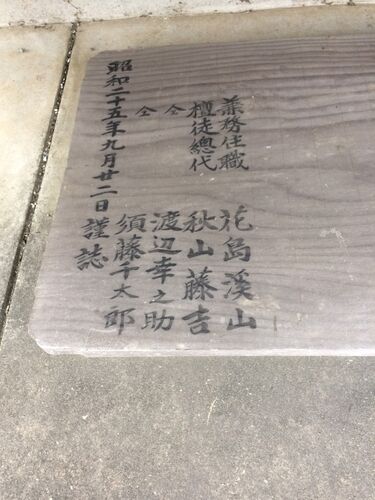 兼務住職 花島溪山
檀徒總代 秋山藤吉
仝 渡辺幸之助
仝 須藤千太郎
昭和二十五年九月廿二日 謹誌